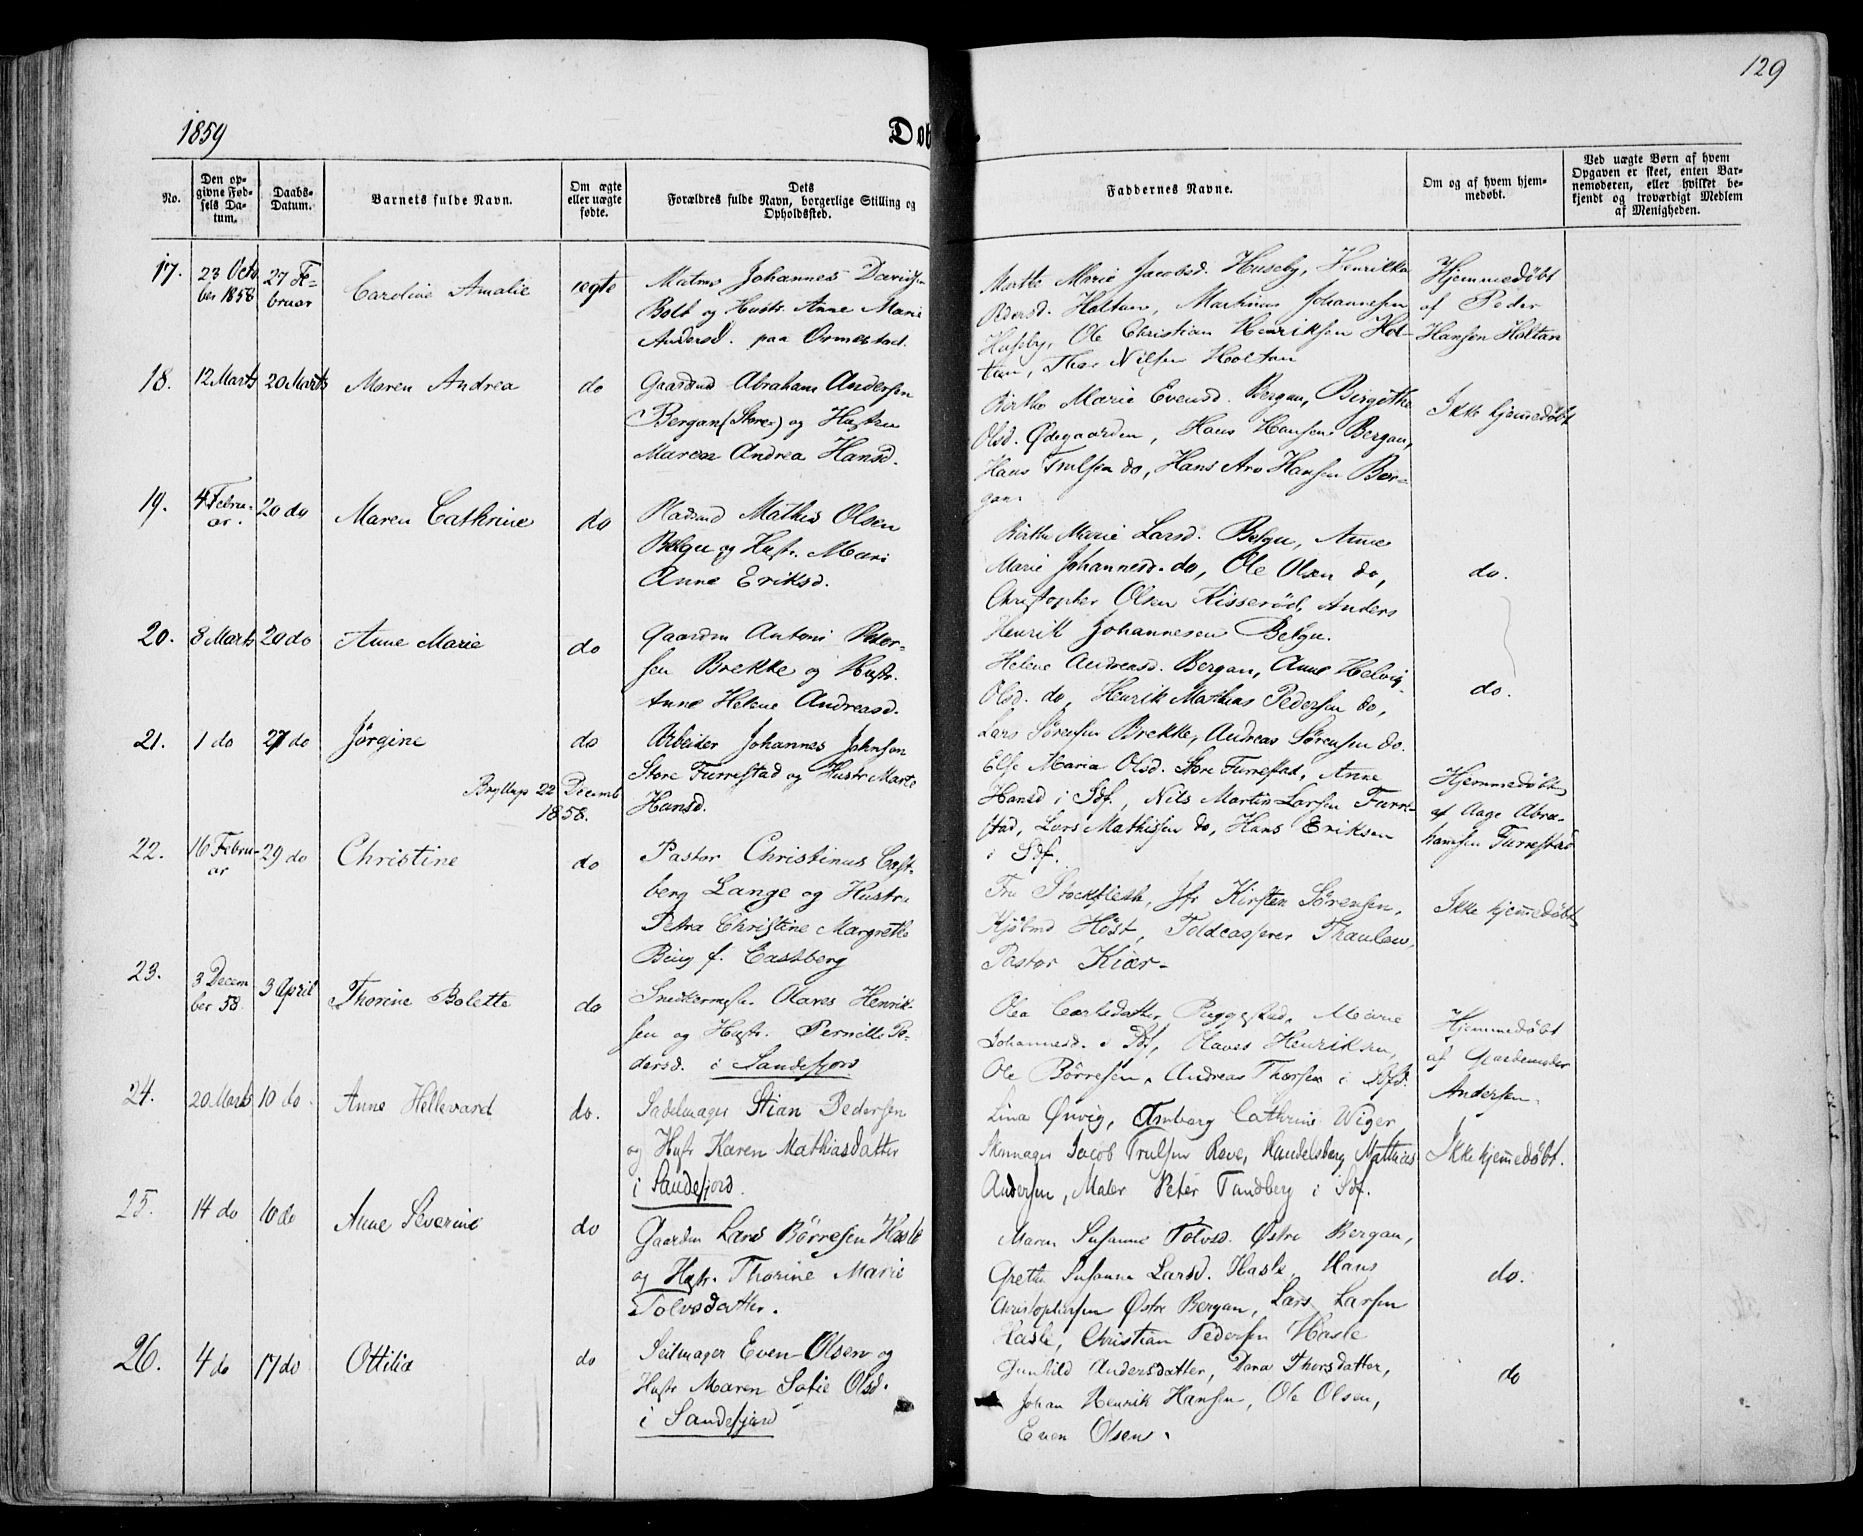 129
1859
Døb
No.
Den op-
givne Fød-
sels Da-
tum.
Daabs-
Datum.
Barnets fulde Navn.
Om ægte
eller uægte
fødte.
Dets
Forældres fulde Navn, borgerlige Stilling og
Opholdssted.
Faddernes Navne.
Om og af hvem hjem-
medøbt.
Ved uægte Børn af hvem
Opgaven er skeet, enten Bar-
nemoderen, eller hvilket be-
kjendt og troværdigt Medlem
af Menigheden.
17.
23 Octo
ber 1858
27 Fe-
bruar
Caroline Amalie
ægte
Matros Johannes Davidsen
Bolt og Hustr. Anne Marie
Andersd. paa Ormestad.
Marthe Marie Jacobsd. Huseby, Henrikka
Pedersd. Holtan, Mathias Johannesen
Huseby, Ole Christian Henriksen Hol-
tan, Thor Nilsen Holtan
Hjemmedøbt
af Peder
Hansen Holtan
18.
12 Marts
20 Marts
Maren Andrea
do
Gaardmd Abraham Andersen
Bergan (Store) og Hustru
Maren Andrea Hansd.
Birthe Marie Evensd. Bergan, Birgithe
Olsd. Ødegaarden, Hans Hansen Bergan,
Hans Trulsen do, Hans Aro Hansen Ber-
gan.
Ikke hjemmedøbt
19.
4 Febru-
ar.
20 do
Maren Cathrine
do
Pladsmd Mathis Olsen
Bøgu og Hustr. Mari
Anne Eriksd.
Birthe Marie Larsd. Bøgu, Anne
Marie Johannesd. do, Ole Olsen do,
Christopher Olsen Kisserød, Anders
Henrik Johannesen Bøgu.
do.
20.
8 Marts
20 do
Anne Marie
do
Gaardm Antoni Peder-
sen Brekke og Hustr.
Anne Helene Andreasd.
Helene Andreasd. Bergan, Anne Helvig
Olsd. do, Henrik Mathias Pedersen do,
Lars Sørensen Brekke, Andreas Sørensen do.
do.
21.
1 do
27 do
Jørgine
Bryllup 22 Decemb
1858.
do
Arbeider Johannes Johnsen
Store Furrestad og Hustr Marte
Hansd.
Else Maria Olsd. Store Furrestad, Anne
Hansd i Sdf., Nils Martin Larsen Furre-
stad, Lars Mathisen do, Hans Eriksen
i Sdf.
Hjemmedøbt
af Aage Abra-
hamsen Furrestad
22.
16 Febru-
ar
29 do
Christine
do
Pastor Christinus Cast-
berg Lange og Hustru
Petra Christine Margrethe
Bing f. Castberg
Fru Stockfleth, Jfr Kirsten Sørensen,
Kjøbmd Høst, Toldcasserer Thaulow,
Pastor Kiær-
Ikke hjemmedøbt
23.
3 Decem
ber 58.
3 April
Thorine Bolette
do
Snedkermestr. Olaves Henrik-
sen og Hustr. Pernille Pe-
dersd. i Sandefjord
Olea Carlsdatter Puggestad, Marie
Johannesd. i Sdf, Olaves Henriksen,
Ole Børresen, Andreas Thorsen i Sdfd.
Hjemmedøbt
af Gjordemoder
Andersen.
24.
20 Marts
10 do.
Anne Hellevard
do.
Sadelmager Stian Pedersen
og Hustr Karen Mathiasdatter
i Sandefjord.
Lina Ønvig, Amborg Cathrine Wiger
Skomager Jacob Trulsen Rove, Handelsbg Mathias
Andersen, Maler Peter Tandberg i Sdf.
Ikke hjemmedøbt.
25.
14 do
10 do
Anne Severine
do
Gaardm Lars Børresen Hasle
og Hustr. Thorine Marie
Tolvsdatter.
Maren Susanne Tolvsd. Østre Bergan,
Grethe Susanne Larsd. Hasle, Hans
Christophersen Østre Bergan, Lars Larsen
Hasle, Christian Pedersen Hasle
do.
26.
4 do
17 do
Ottilia
do
Seilmager Even Olsen og
Hustr Maren Sofie Olsd.
i Sandefjord
Gunhild Andersdatter, Dana Thorsdatter,
Johan Henrik Hansen, Ole Olsen,
Even Olsen.
do